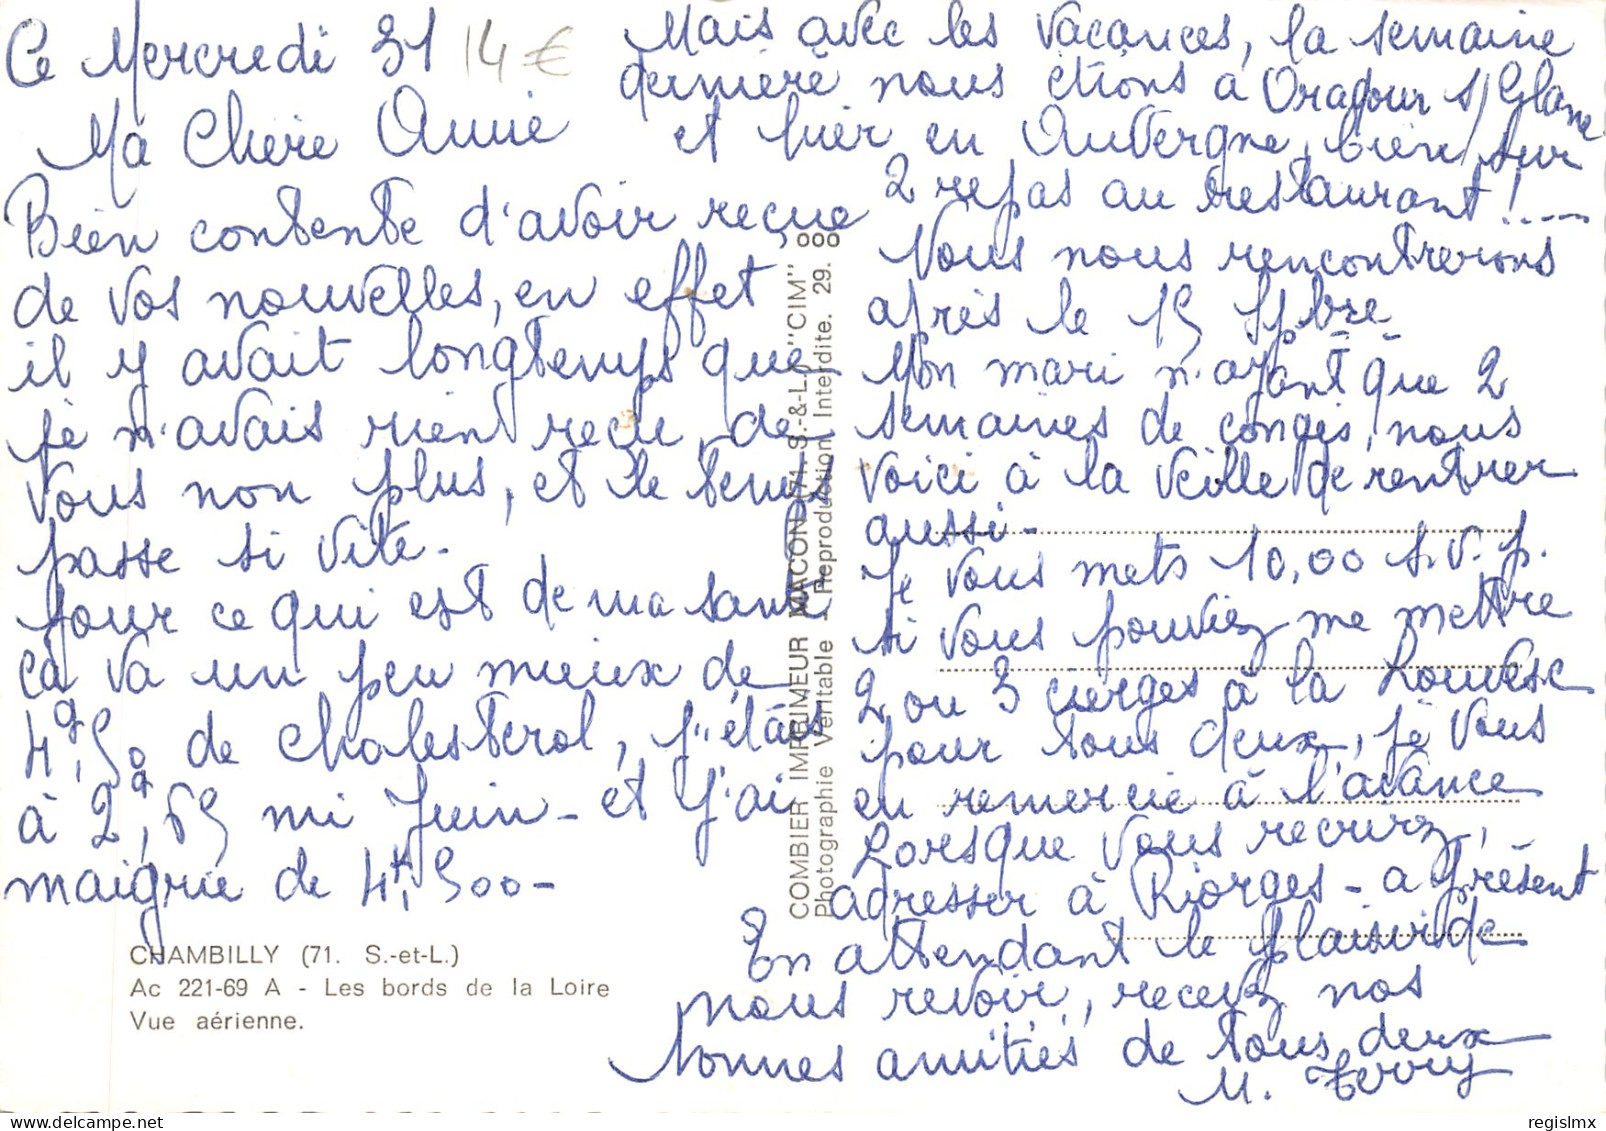 Ce Mercredi 31 14 €
Ma Chère Annie
Bien contente d'avoir reçue
de vos nouvelles, en effet
il y avait longtemps que
je n'avais rien reçu, de
vous non plus, et le temps
passe si vite.
Pour ce qui est de ma santé
ça va un peu mieux de
4g,50 de cholesterol, j'étais
à 2g,65 mi Juin - et j'ai
maigrie de 4k,500 -
CHAMBILLY (71. S.-et-L.)
Ac 221-69 A - Les bords de la Loire
Vue aérienne.
COMBIER IMPRIMEUR MACON (71 S.-&-L.) "CIM"
Photographie Véritable - Reproduction Interdite. 29.
Mais avec les vacances, la semaine
dernière nous étions à Oradour s/ Glane
et hier en Auvergne, bien sur
2 repas au restaurant!....
Nous nous rencontrerons
après le 15
Mon mari n'ayant que 2
semaines de congés, nous
voici à la veille de rentrer
aussi -
Je vous mets 10,00 s.v.p.
si vous pouviez me mettre
2 ou 3 cierges à la Louvesc
pour tous deux, je vous
en remercie à l'avance
Lorsque vous recrirez,
adresser à Riorges - a présent
En attendant le plaisir de
nous revoir, recevez nos
bonnes amitiés de tous deux
M.
regislmx